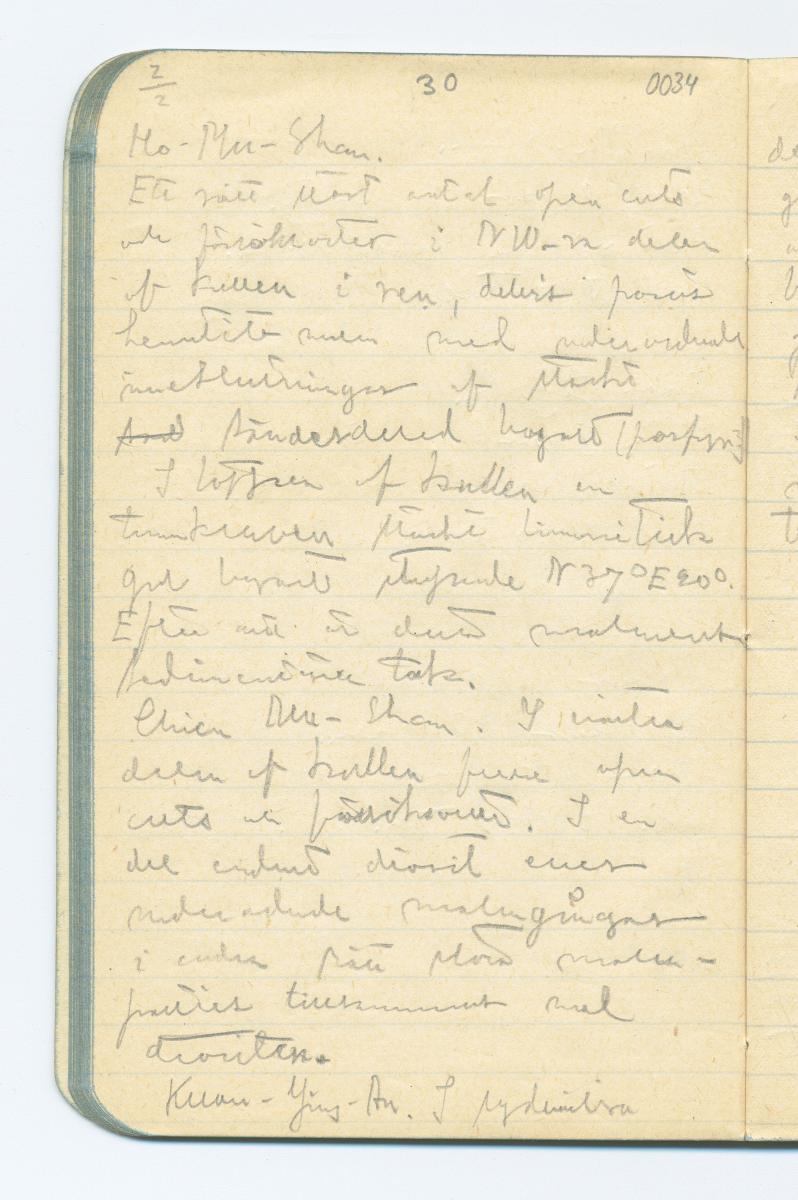 2/2 30 0034
Ho-Mu-Shan.
Ett rätt stort antal open cuts
och försöksorter i NW-ra delen
af kullen i ren, delvis porös
hematite men med underordnade
inneslutningar af starkt
sönderdelad bergart (porfyr?)
I toppen af kullen en
starkt
N37°E 90°.
Efter att är
sedimentära tak.
Chien Mu-Shan. I västra
delen af kullen finnes open
cuts och försöksorter. I en
del endast diorit
underordnade malmgångar
i andra rätt stora malm-
partier tillsammans med
dioriten.
Kuan-Ying-An. I sydvästra